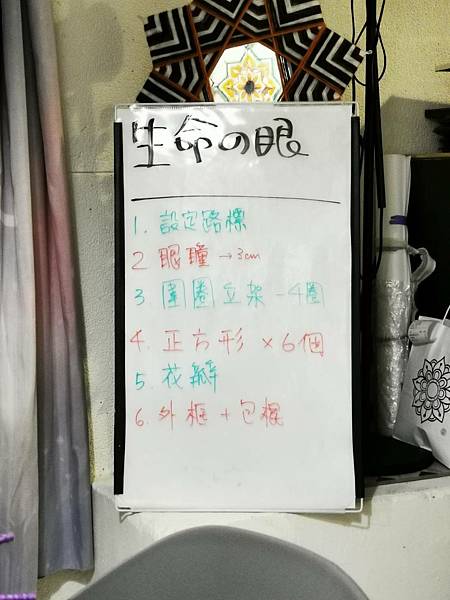 生命の眼
1. 設定路標
2 眼瞳 → 3cm
3 圍圈立架 - 4圈
4. 正方形 × 6個
5. 花瓣
6. 外框 + 包棍